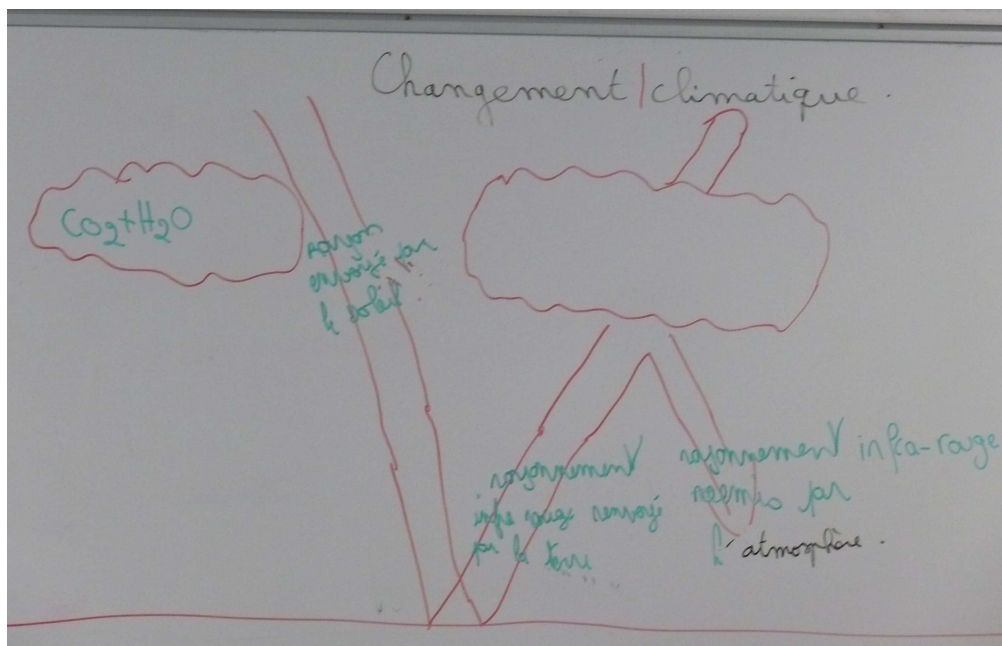 Changement/climatique.
CO2+H2O
rayon
envoyé par
le soleil.
rayonnement
infra rouge renvoyé
par la terre
rayonnement infra-rouge
reemis par
l'atmosphère.